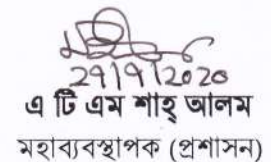 29/9/2020
এ টি এম শাহ্ আলম
মহাব্যবস্থাপক (প্রশাসন)